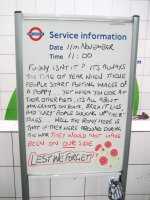 Service information
Date 11TH NOVEMBER
Time 11:00
FUNNY ISN'T IT? IT'S ALWAYS
THIS TIME OF YEAR WHEN THESE
PEOPLE START POSTING IMAGES OF
A POPPY... YET WHEN YOU LOOK AT
THEIR OTHER POSTS, IT'S ALL ABOUT
IMMIGRANTS ON RAFTS, BREXIT LIES
AND LAZY PEOPLE SOAKING UP THEIR
TAXES... WELL THE IRONY HERE IS
THAT IF THEY WERE AROUND DURING
THE WAR THEY WOULD NOT HAVE
BEEN ON OUR SIDE
LEST WE FORGET